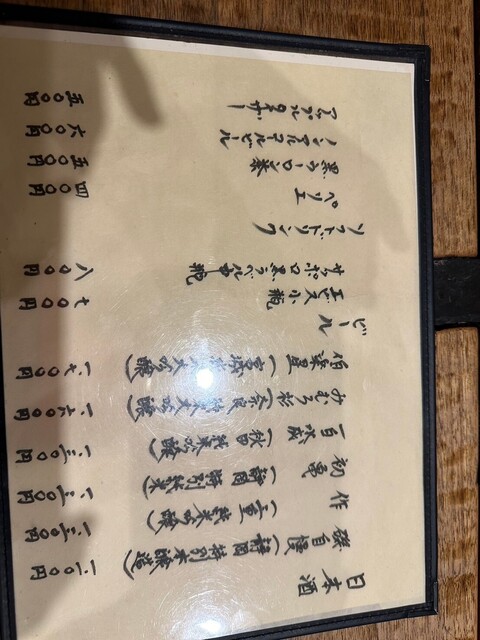 日本酒
磯自慢(静岡 特別本醸造) 一、一〇〇円
作(三重 純米吟醸) 一、二〇〇円
初亀(静岡 特別純米) 一、二〇〇円
一白水成(秋田 純米吟醸) 一、三〇〇円
みむろ杉(奈良 純米大吟醸) 一、六〇〇円
伯楽星(宮城 純米大吟醸) 一、七〇〇円
ビール
エビス小瓶 七〇〇円
サッポロ黒ラベル中瓶 八〇〇円
ソフトドリンク
ペリエ 四〇〇円
黒ウーロン茶 五〇〇円
ノンアルコールビール 六〇〇円
五〇〇円